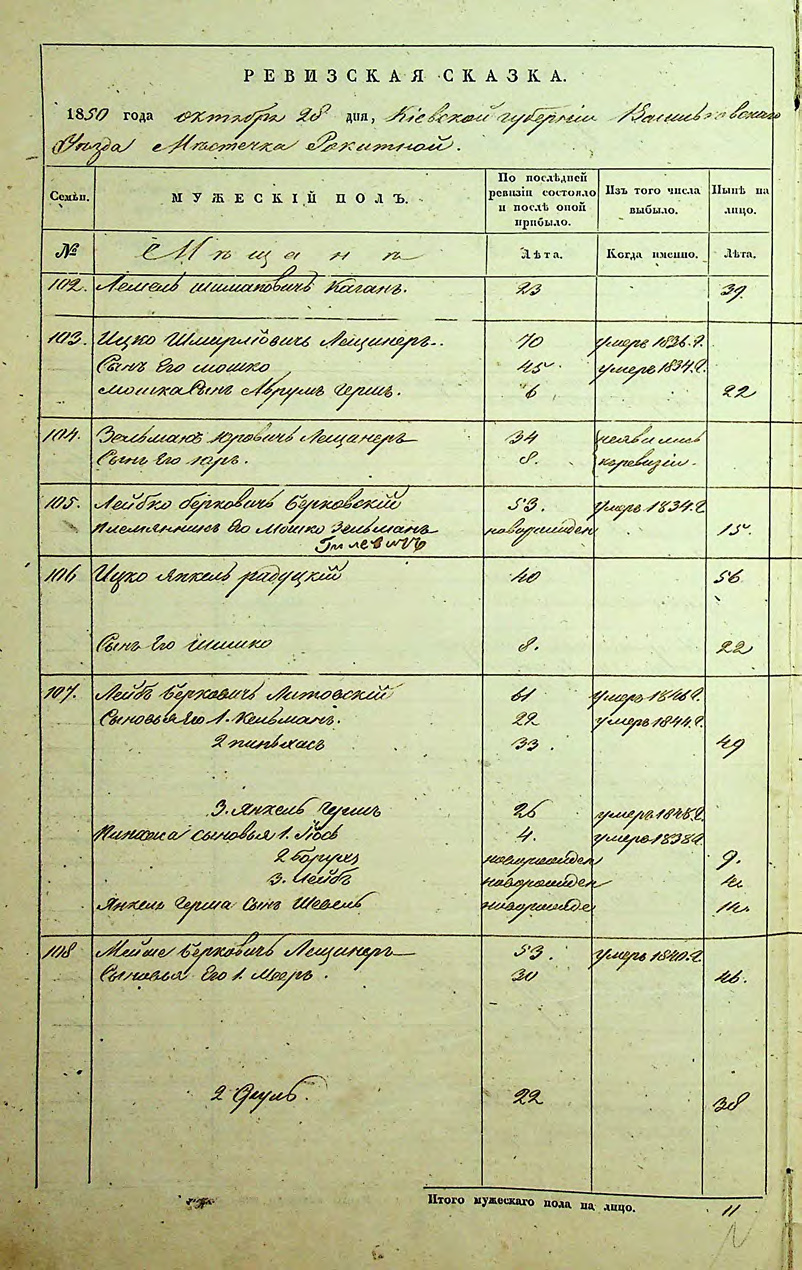 РЕВИЗСКАЯ СКАЗКА.
1850 года октября 28 дня, Кіевской губерніи Васильковскаго
Уѣзда Мѣстечка Рокитной.
Семьи. МУЖЕСКІЙ ПОЛЪ. По послѣдней ревизіи состояло и послѣ оной прибыло. Изъ того числа выбыло. Нынѣ на лицо.
№ Мѣщане Лѣта. Когда именно. Лѣта.
102. Каганъ. 23 39
103. Ицко Шмирловичъ Лещинеръ 70 умеръ 1836.г.
Сынъ Его мошко 45 умеръ 1834.г.
мошка Сынъ Аврумъ Гершъ. 6 22
104. Зельманъ Юровичъ Лещанеръ 34 неявились
Сынъ Его 8. кревизіи.
105. Лейбко берковичъ Берковскій 53. умеръ 1834.г
Племянникъ Его Мошко Зельманъ новорожден 15.
106 Ицко Янкель радуцкій 40 56
Сынъ Его Шмишко 8. 22
107. Лейбъ Берковичъ Литовскій 61 умеръ
Сыновья Его 1. Кельманъ. 22 умеръ 1844.г.
2 пинхасъ 33. 49
3. Янкель Гершъ 26 умеръ 1848.г.
Пинхаса сыновья 1. Іось 4. умеръ 1838г
2 Борухъ новорожден 9.
3. Лейбъ новорожден 4
Янкель Герша Сынъ Шевель новорожде 14
108 Берковичъ Лещинеръ 53. умеръ 1840.г
Сыновья Его 1. Мееръ. 30 46.
2 Сруль. 22 38
Итого мужескаго пола на лицо. 11